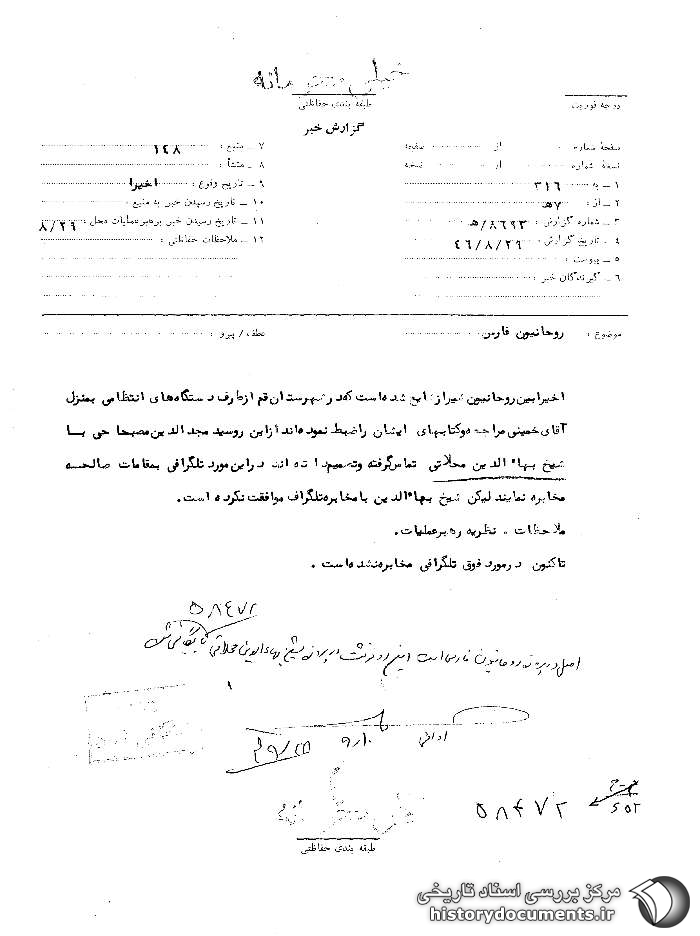 خیلی محرمانه
طبقه بندی حفاظتی
درجه فوریت
گزارش خبر
صفحهٔ شماره از صفحه
نسخهٔ شماره از نسخه
۱ ـ به ۳۱۶
۲ ـ از : ه۷
۳ ـ شماره گزارش : ۸۶۹۳/ه
۴ ـ تاریخ گزارش : ۴۶/۸/۲۹
۵ ـ پیوست :
۶ ـ گیرندگان خبر :
۷ ـ منبع : ۱۴۸
۸ ـ منشأ :
۹ ـ تاریخ وقوع : اخیرا
۱۰ ـ تاریخ رسیدن خبر به منبع :
۱۱ ـ تاریخ رسیدن خبر برهبر عملیات محل : ۸/۲۹
۱۲ ـ ملاحظات حفاظتی :
موضوع : روحانیون فارس
عطف / پیرو :
اخیرا بین روحانیون شیراز شایع شده است که در شهرستان قم از طرف دستگاه های انتظامی بمنزل
آقای خمینی مراجعه و کتابهای ایشان را ضبط نموده اند از این رو سید مجد الدین مصباحی با
شیخ بهاء الدین محلاتی تماس گرفته و تصمیم داشته اند در این مورد تلگرافی بمقامات صالحه
مخابره نمایند لیکن شیخ بهاء الدین با مخابره تلگراف موافقت نکرده است .
ملاحظات . نظریه رهبر عملیات .
تاکنون در مورد فوق تلگرافی مخابره نشده است .
۵۸۴۷۲
اصل در پرونده روحانیون فارس است این رونوشت در پرونده شیخ بهاءالدین محلاتی بایگانی شود
۵۸۴۷۲
خیلی محرمانه
طبقه بندی حفاظتی
مرکز بررسی اسناد تاریخی
historydocuments.ir